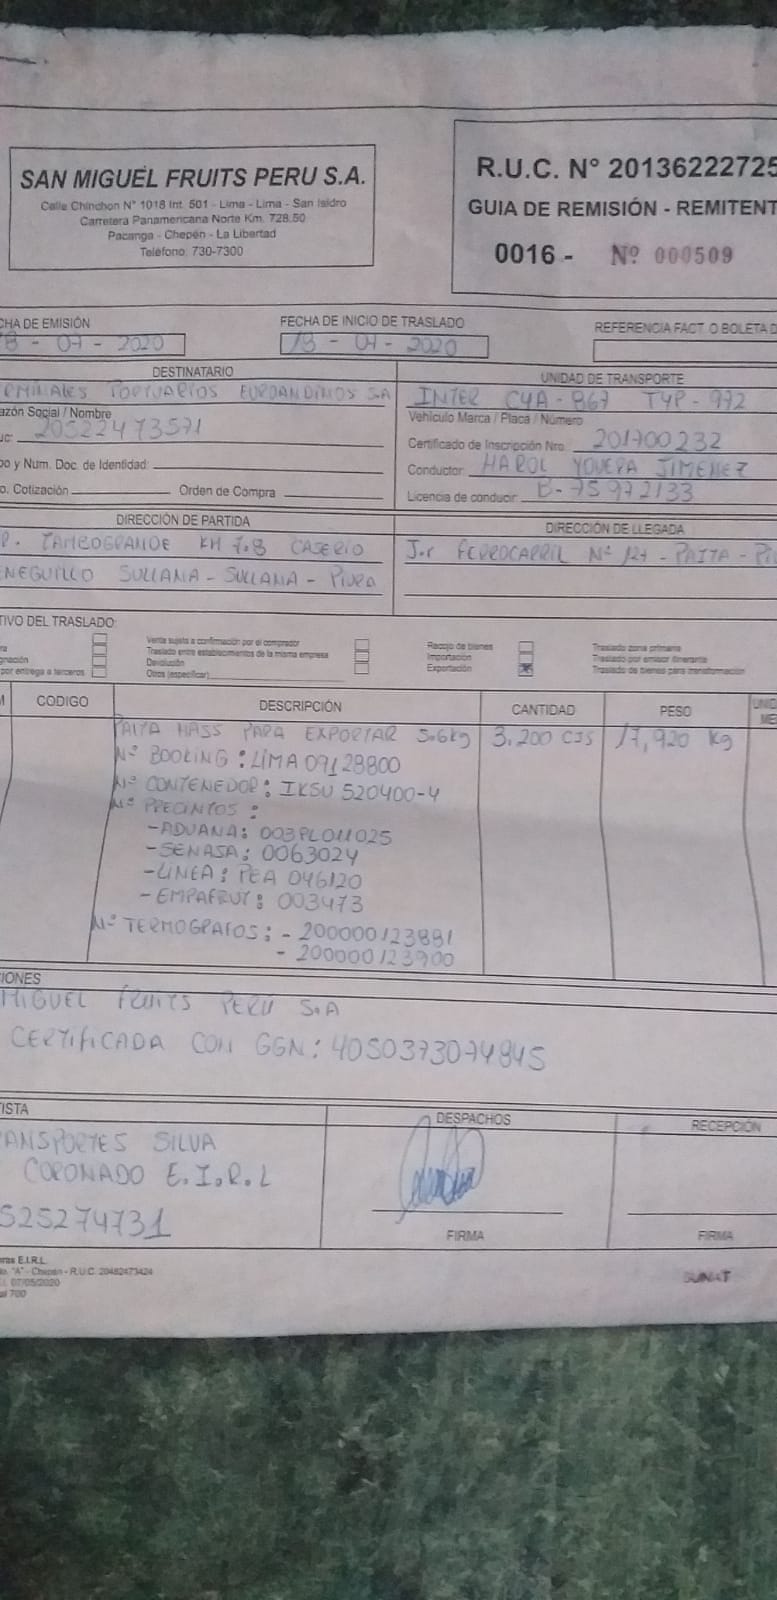 SAN MIGUEL FRUITS PERU S.A.
Calle Chinchon N° 1018 Int. 501 - Lima - Lima - San Isidro
Carretera Panamericana Norte Km. 728.50
Pacanga - Chepén - La Libertad
Teléfono: 730-7300
R.U.C. N° 20136222725
GUIA DE REMISIÓN - REMITENT
0016 - Nº 000509
CHA DE EMISIÓN
8 - 07 - 2020
FECHA DE INICIO DE TRASLADO
18 - 07 - 2020
REFERENCIA FACT. O BOLETA D
DESTINATARIO
RMINALES PORTUARIOS EUROANDINOS SA
azón Social / Nombre
uc: 20522473571
o y Num. Doc. de Identidad:
o. Cotización Orden de Compra
UNIDAD DE TRANSPORTE
INTER C4A - 867 TYP - 972
Vehículo Marca / Placa / Número
Certificado de Inscripción Nro. 201700232
Conductor: HAROL YOVERA JIMENEZ
Licencia de conducir: B-75972133
DIRECCIÓN DE PARTIDA
R. TAMBOGRANDE KM 7.8 CASERIO
NEGUILLO SULLANA - SULLANA - PIURA
DIRECCIÓN DE LLEGADA
J.r FERROCARRIL Nº 127 - PAITA - PI
TIVO DEL TRASLADO:
por entrega a terceros
Venta sujeta a confirmación por el comprador
Traslado entre establecimientos de la misma empresa
Devolución
Otros (especificar)
Recojo de bienes
Importación
Exportación
Traslado zona primaria
Traslado por emisor itinerante
Traslado de bienes para transformación
CODIGO DESCRIPCIÓN CANTIDAD PESO
PALTA HASS PARA EXPORTAR 5.6kg 3,200 CJS 17,920 Kg
Nº BOOKING : LIMA 09128800
Nº CONTENEDOR : IKSU 520400-4
Nº PRECINTOS :
- ADUANA: 003PL011025
- SENASA: 0063024
- LINEA : PEA 046120
- EMPAFRUT: 003473
Nº TERMOGRAFOS : - 200000123881
- 200000123900
IONES
MIGUEL FRUITS PERÚ S.A
CERTIFICADA CON GGN: 4050373074845
TISTA
ANSPORTES SILVA
CORONADO E.I.R.L
525274731
DESPACHOS
FIRMA
RECEPCIÓN
FIRMA
ras E.I.R.L.
"A" - Chepén - R.U.C. 20482473424
07/05/2020
al 700
SUNAT